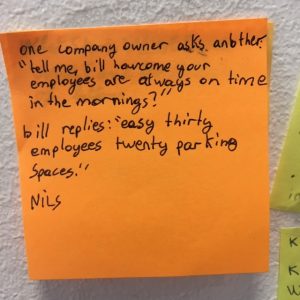 one company owner asks another:
"tell me, bill howcome your
employees are always on time
in the mornings?"
bill replies: "easy thirty
employees twenty parking
spaces."
Nils
K
K
W